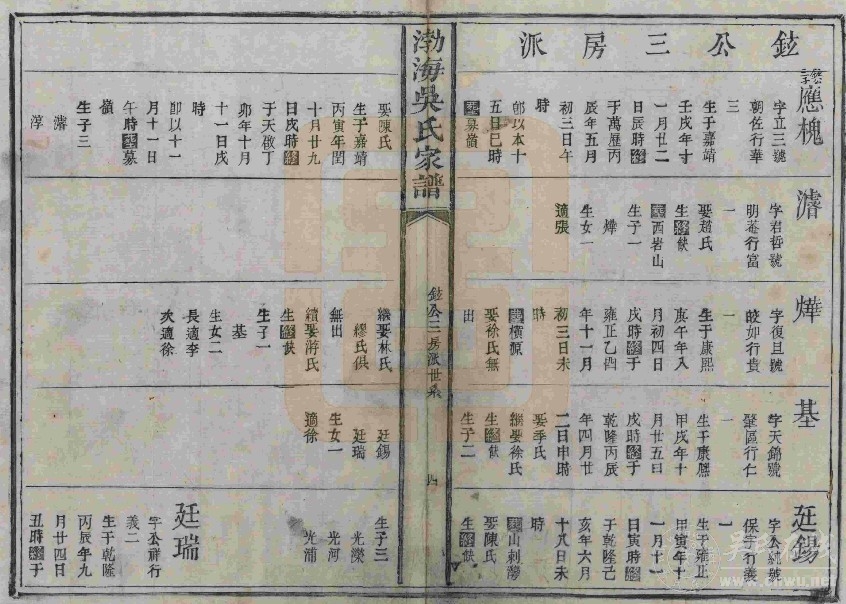 鉉公三房派
應槐
字立三號
朝佐行華
三
生于嘉靖
壬戌年十
一月廿二
日辰時終
于萬歷丙
辰年五月
初三日午
時
卽以本十
五日巳時
墓嶺
娶陳氏
生于嘉靖
丙寅年閏
十月廿九
日戌時終
于天啟丁
卯年十月
十一日戌
時
卽以十一
月十一日
午時墓
嶺
生子三
濬
淳
濬
字君哲號
明菴行富
一
娶趙氏
生終缺
西岩山
生子一
燁
生女一
適張
燁
字復旦號
皎如行貴
一
生于康熙
庚午年八
月初四日
戌時終于
雍正乙酉
年十一月
初三日未
時
橫源
娶徐氏無
出
繼娶林氏
繆氏俱
無出
續娶游氏
生終缺
生子一
基
生女二
長適李
次適徐
基
字天錦號
行仁
一
生于康熙
甲戌年十
月廿五日
戌時終于
乾隆丙辰
年四月廿
二日申時
娶季氏
繼娶徐氏
生終缺
生子二
廷錫
廷瑞
生女一
適徐
廷錫
字公純號
保宇行義
一
生于雍正
甲寅年十
一月十一
日寅時終
于乾隆己
亥年六月
十八日未
時
山刺灣
娶陳氏
生終缺
生子三
光濼
光河
光浦
廷瑞
字公祥行
義二
生于乾隆
丙辰年九
月廿四日
丑時終于
渤海吳氏家譜
鉉公三房派世系
四